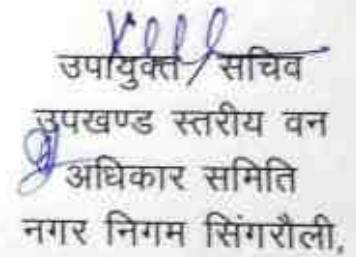 उपायुक्त / सचिव
उपखण्ड स्तरीय वन
अधिकार समिति
नगर निगम सिंगरौली.